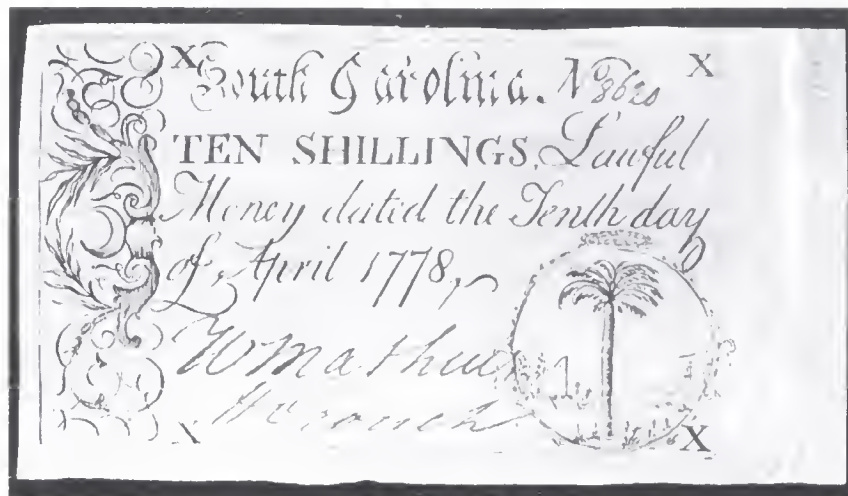 X South Carolina. No 8620 X
TEN SHILLINGS, Lawful
Money dated the Tenth day
of April 1778,
X X